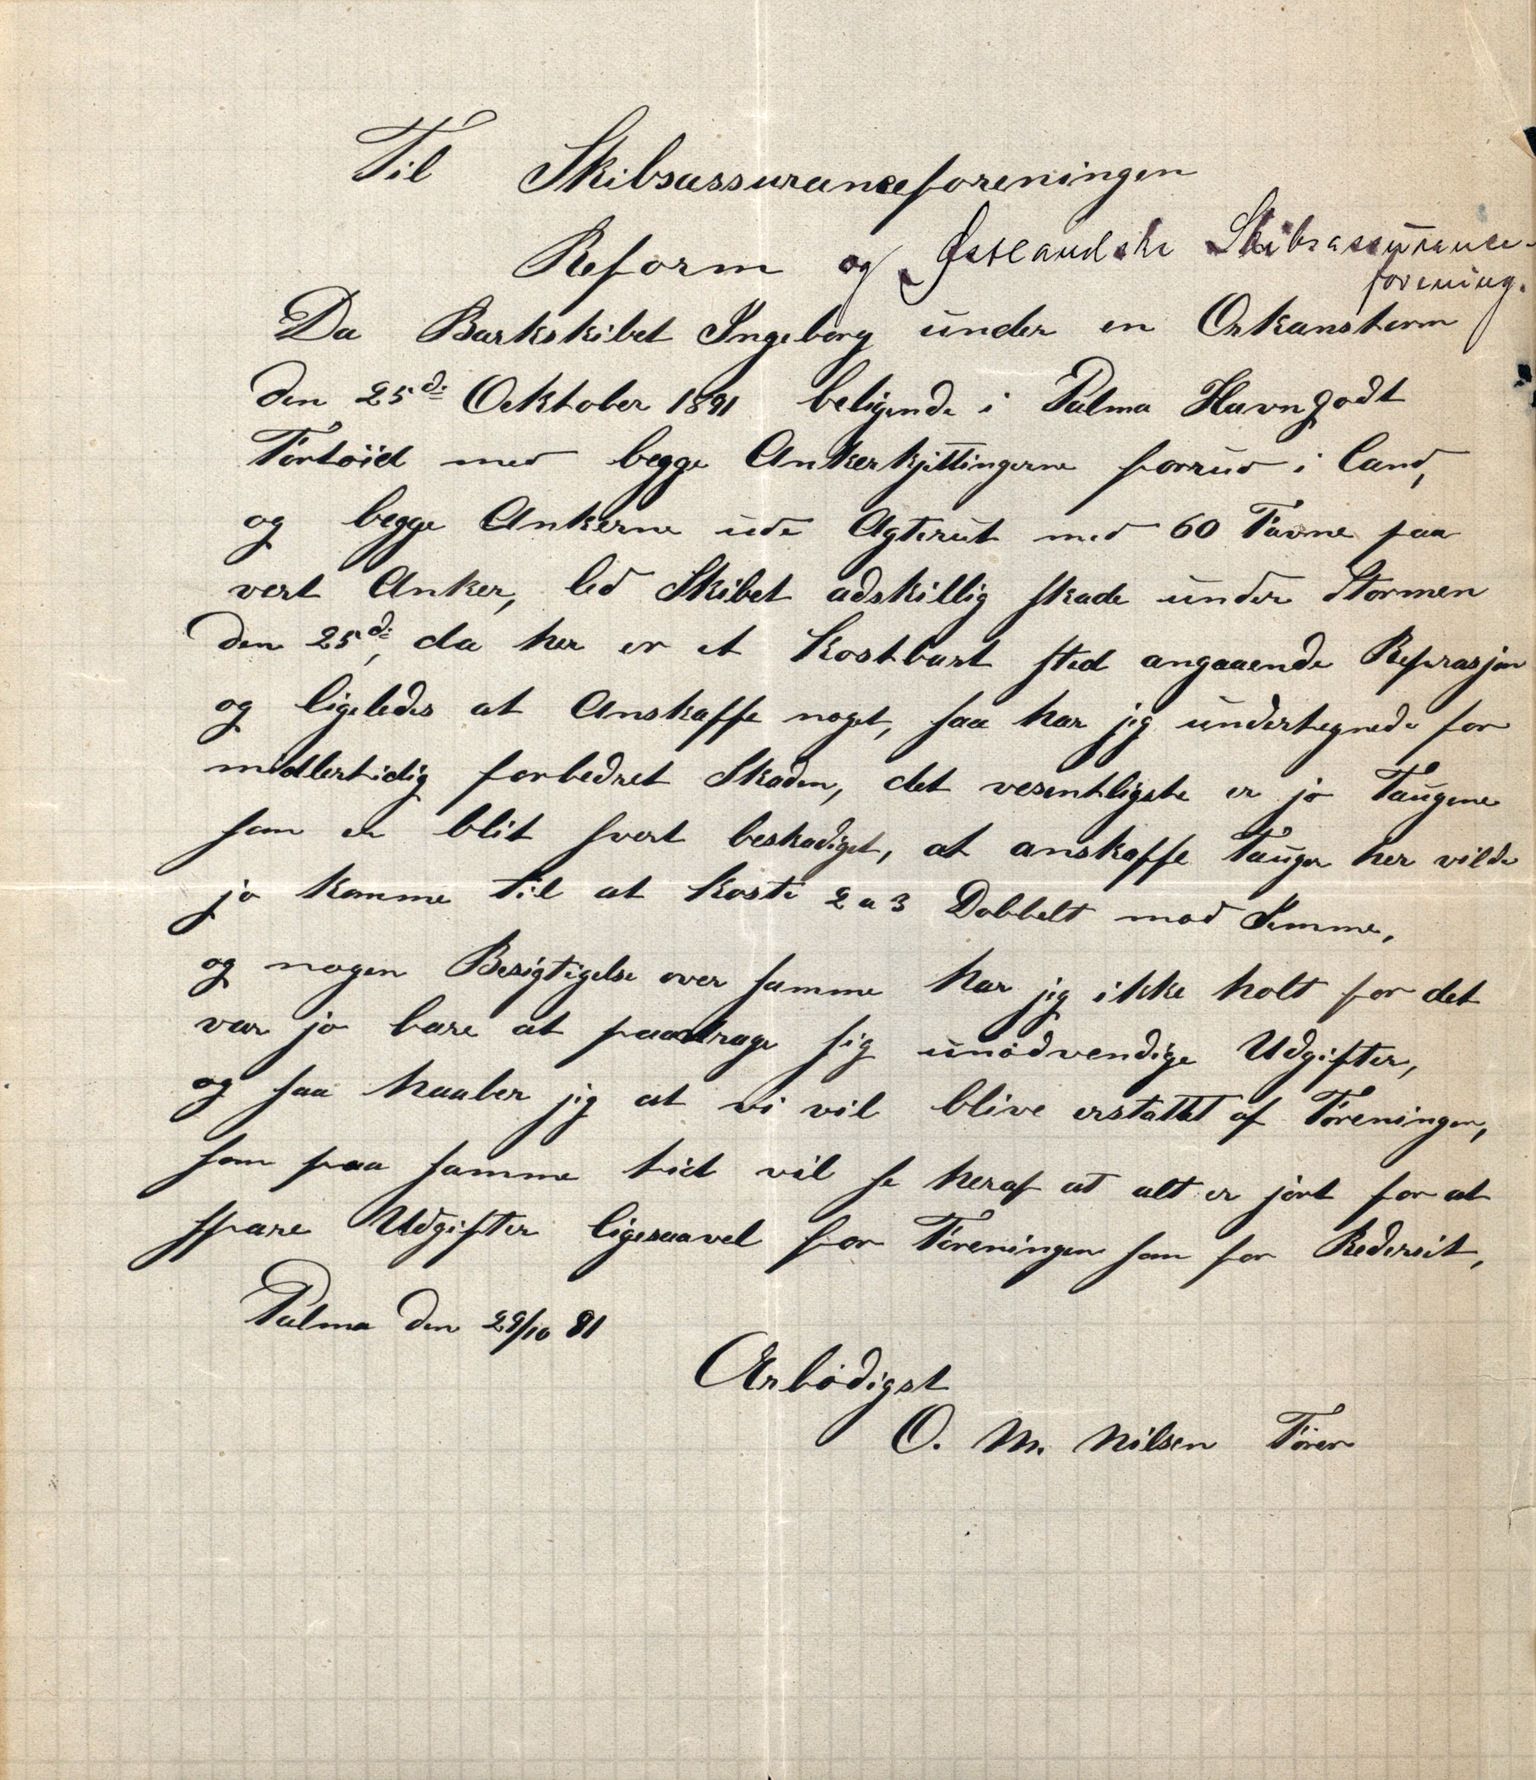 Til Skibsassuranceforeningen
Reform og Østlandske Skibsassurance-
forening.
Da Barkskibet Ingeborg under en Orkanstorm
den 25de Ocktober 1891 beligende i Palma Havn godt
Fortöid med begge Ankerkjettingerne forrud i Land,
og begge Ankerne ude Agterut med 60 Favne paa
vert Anker, led Skibet adskillig skade under Stormen
den 25de, da her er et Kostbart sted angaaende Reprasjon
og ligeledes at Anskaffe noget, saa har jeg undertegnede for
midlertidig forbedret Skaden, det vesentligste er jo Taugene
som er blit svert beskadiget, at anskaffe Tauger her vilde
jo komme til at koste 2 a 3 Dobbelt mod Hjemme,
og nogen Besigtigelse over samme har jeg ikke holt for det
var jo bare at paadrage sig unödvendige Udgifter,
og saa haaber jeg at vi vil blive erstattet af Foreningen,
som paa samme tid vil se heraf at alt er jört for at
spare Udgifter ligesaavel for Foreningen som for Rederiet,
Palma den 29/10 91
Ærbödigst
O. M. Nilsen Förer